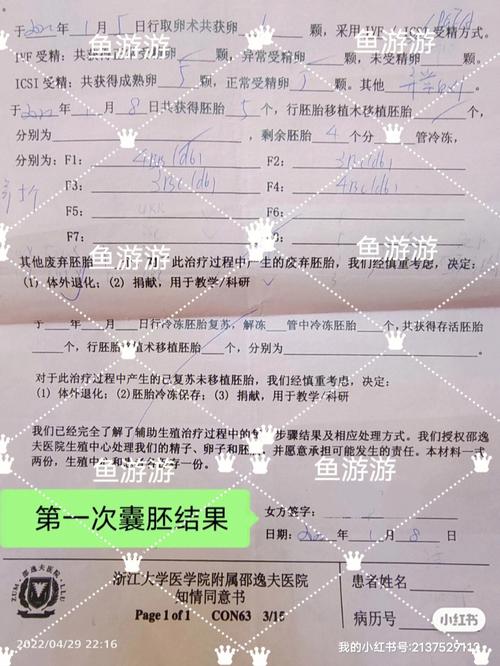 于2022年1月5日行取卵术共获卵 颗，采用IVF / ICSI受精方式。
IVF受精：共获得成熟卵 颗，异常受精卵 颗，未受精卵 颗。
ICSI受精：共获得成熟卵 5 颗，正常受精卵 5 颗。其他
于2022年1月8日共获得胚胎 5 个，行胚胎移植术移植胚胎 个，
分别为 ，剩余胚胎 4 个分 管冷冻，
分别为：F1： 4BB(d6) F2： 3BC(d6)
F3： 3BC(d6) F4： 4BC(d6)
F5： F6：
F7：
其他废弃胚胎 对于此治疗过程中产生的废弃胚胎，我们经慎重考虑，决定：
(1) 体外退化；(2) 捐献，用于教学/科研
于 年 月 日行冷冻胚胎复苏，解冻 管中冷冻胚胎 个，共获得存活胚胎
个，行胚胎移植术移植胚胎 个，分别为 。
对于此治疗过程中产生的已复苏未移植胚胎，我们经慎重考虑，决定：
(1) 体外退化；(2)胚胎冷冻保存；(3) 捐献，用于教学/科研
我们已经完全了解了辅助生殖治疗过程中的 步骤结果及相应处理方式。我们授权邵逸
夫医院生殖中心处理我们的精子、卵子和胚胎，并愿意承担可能发生的责任。本材料一式
两份，生殖中心和患者各保存一份。
第一次囊胚结果
女方签字：
日期：2022年1月8日
浙江大学医学院附属邵逸夫医院
知情同意书
Page 1 of 1 CON63 3/15
患者姓名
病历号
小红书
2022/04/29 22:16
我的小红书号:2137529113
鱼游游
鱼游游
鱼游游
鱼游游
鱼游游
鱼游游
鱼游游
鱼游游